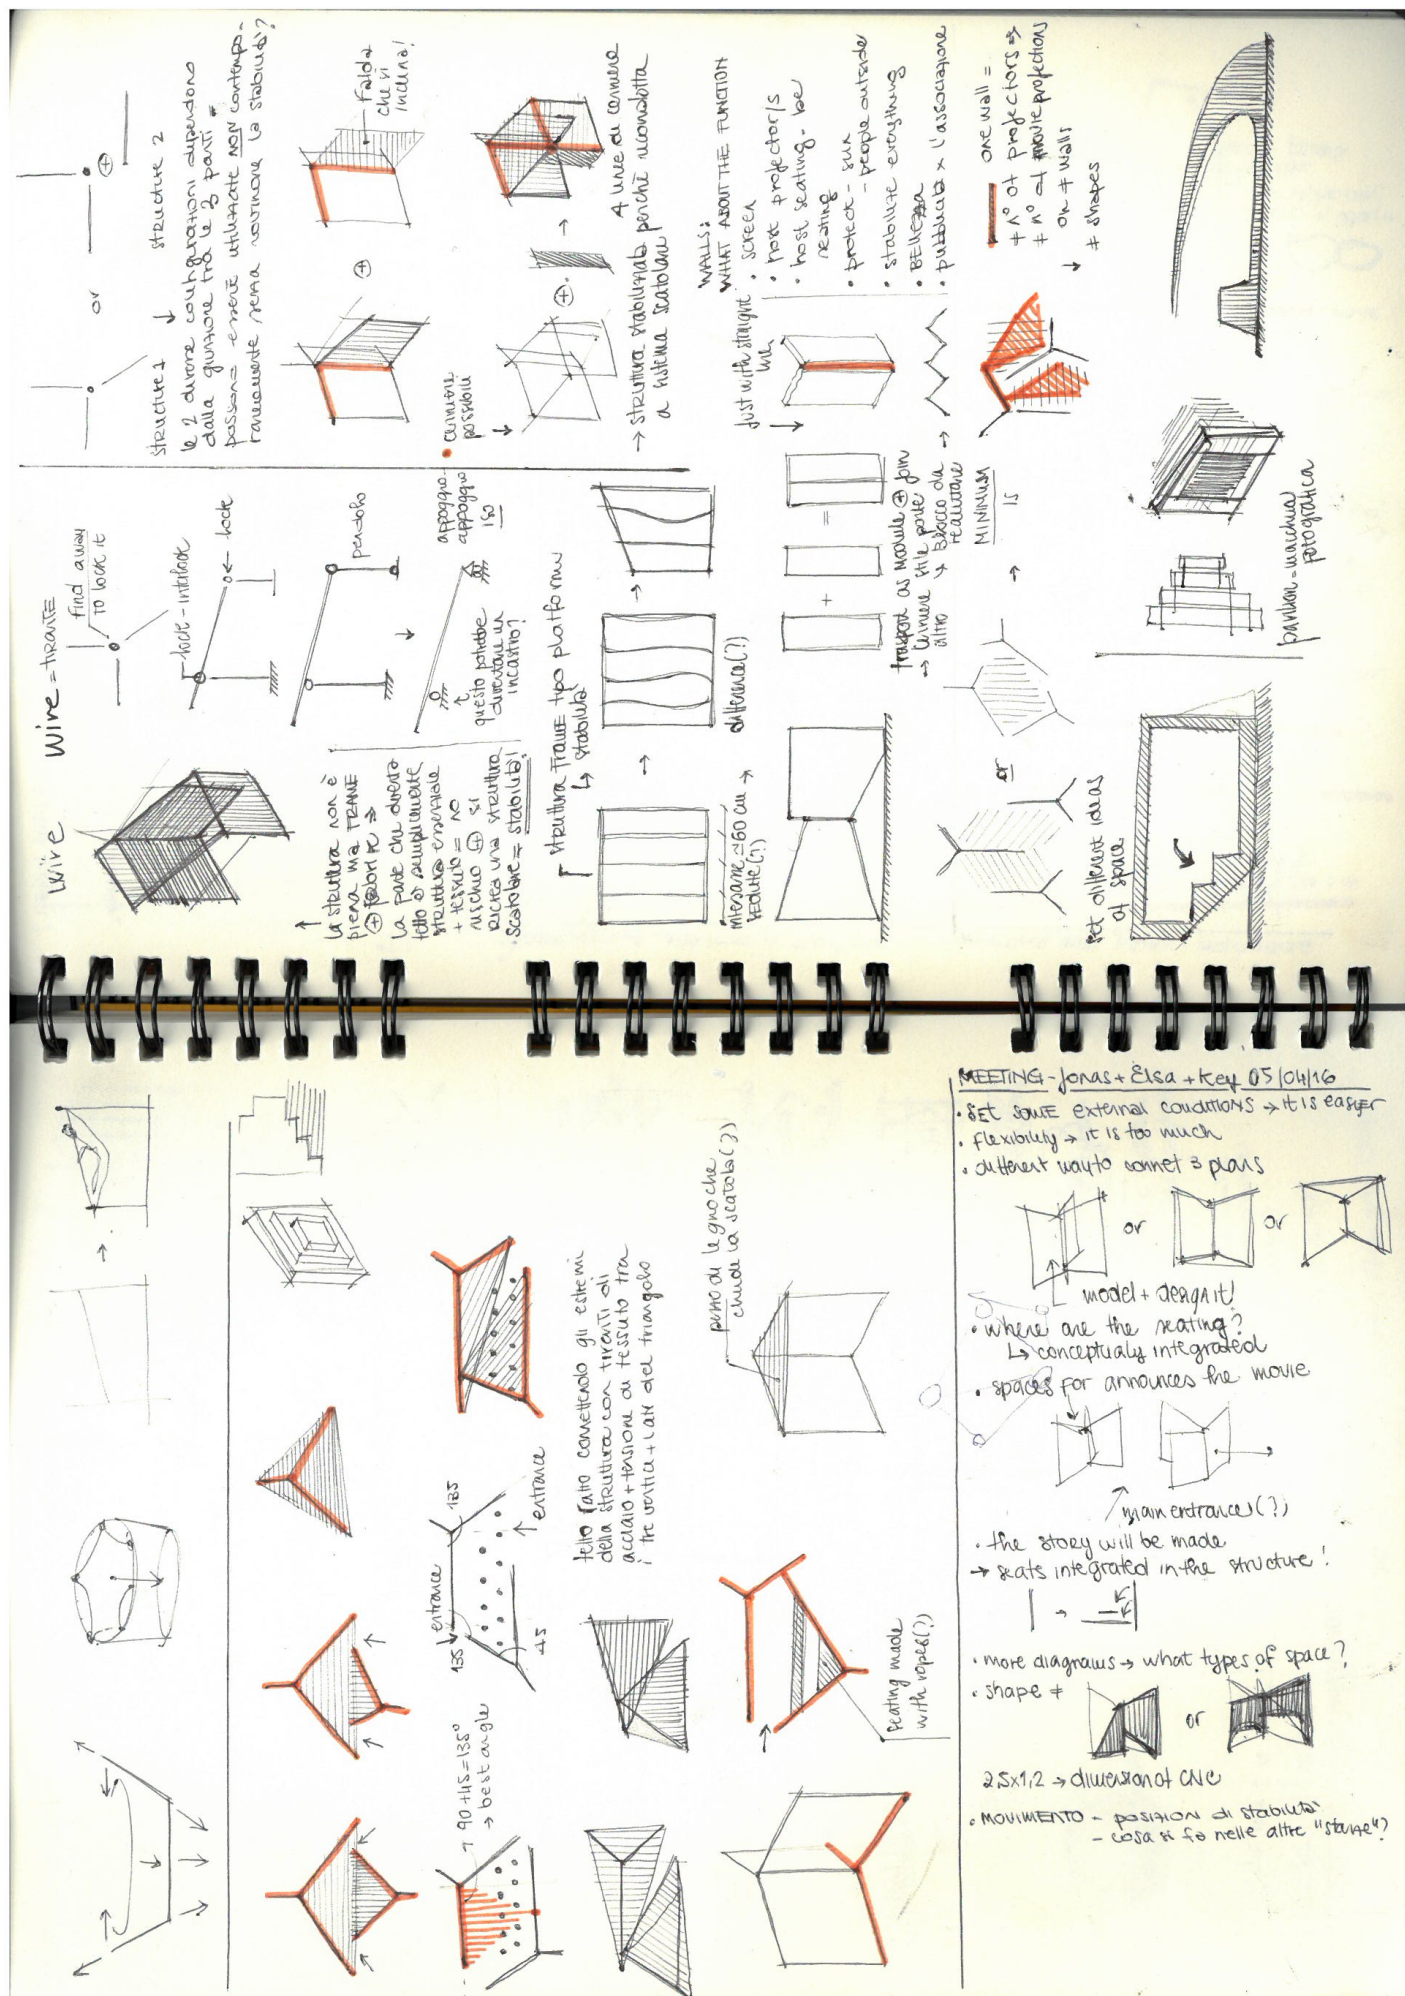 wire
wire = TIRANTE
find a way
to lock it
lock - interlock
lock
pendolo
appoggio -
appoggio
ISO
questo potrebbe
diventare un
incastro?
↑
la struttura non è
piena ma FRAME
⊕ FABRIC ⇒
La parte che diventa
tetto è semplicemente
struttura essenziale
+ tessuto = no
rischio ⊕ si
ricrea una struttura
scatolare = stabilità!
STRUTTURA FRAME TIPO platform
↳ stabilità
interasse ≃ 60 cm →
SEDUTE(?)
difference(?)
transport as module ⊕ join
→ cerniere stile porte
altro ↳ Blocco da
realizzare
or
MINIMUM
is
set different ideas
of space
pavilion = macchina
fotografica
or
structure 1
structure 2
le 2 diverse configurazioni dipendono
dalla giunzione tra le 3 parti =
possono essere utilizzate NON contempo-
raneamente senza rovinare la stabilità?
Falda
che si
inclina!
cerniere
possibili
4 linee di cerniere
→ struttura stabilizzata perchè ricondotta
a sistema scatolare!
just with straight
line
WALLS:
WHAT ABOUT THE FUNCTION
• screen
• host projector/s
• host seating - be
seating
• protect - sun
- people outside
• stabilize everything
• BELLEZZA
• pubblicità x l'associazione
one wall =
≠ n° of projectors ⇒
≠ n° of movie projections
on ≠ walls
↓
≠ shapes
90 + 45 = 135°
→ best angle
entrance
135
135
45
entrance
tetto fatto connettendo gli estremi
della struttura con tiranti di
acciaio + tensione di tessuto tra
i tre vertici + lati del triangolo
seating made
with ropes(?)
pezzo di legno che
chiude la scatola(?)
MEETING - Jonas + Elsa + Key 05/04/16
• SET SOME external conditions → it is easier
• flexibility → it is too much
• different way to connet 3 plans
or
or
model + design it!
• where are the seating?
↳ conceptualy integrated
• spaces for announces the movie
main entrance(?)
• the story will be made
→ seats integrated in the structure!
• more diagrams → what types of space?
• shape ≠
or
2,5x1,2 → dimension of CNC
• MOVIMENTO - posizion di stabilità
- cosa si fa nelle altre "stanze"?